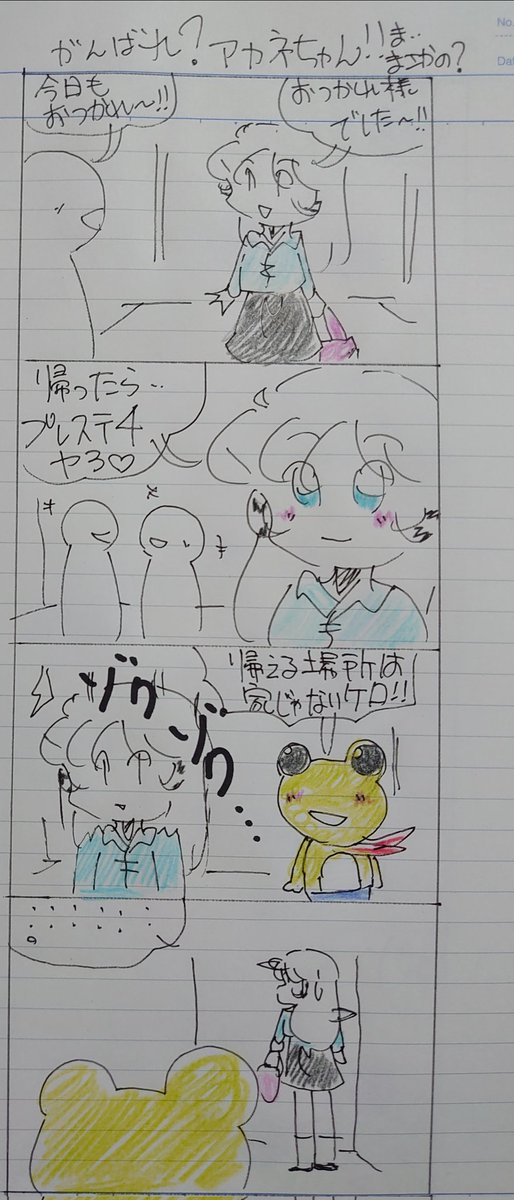 がんばれ?アカネちゃん!!ま‥
まさかの?
No
Dat
今日も
おつかれ〜!!
おつかれ様
でした〜!!
帰ったら‥
プレステ4
ヤろ♡
ゾワ
ゾワ…
帰える場所は
家じゃないケロ!!